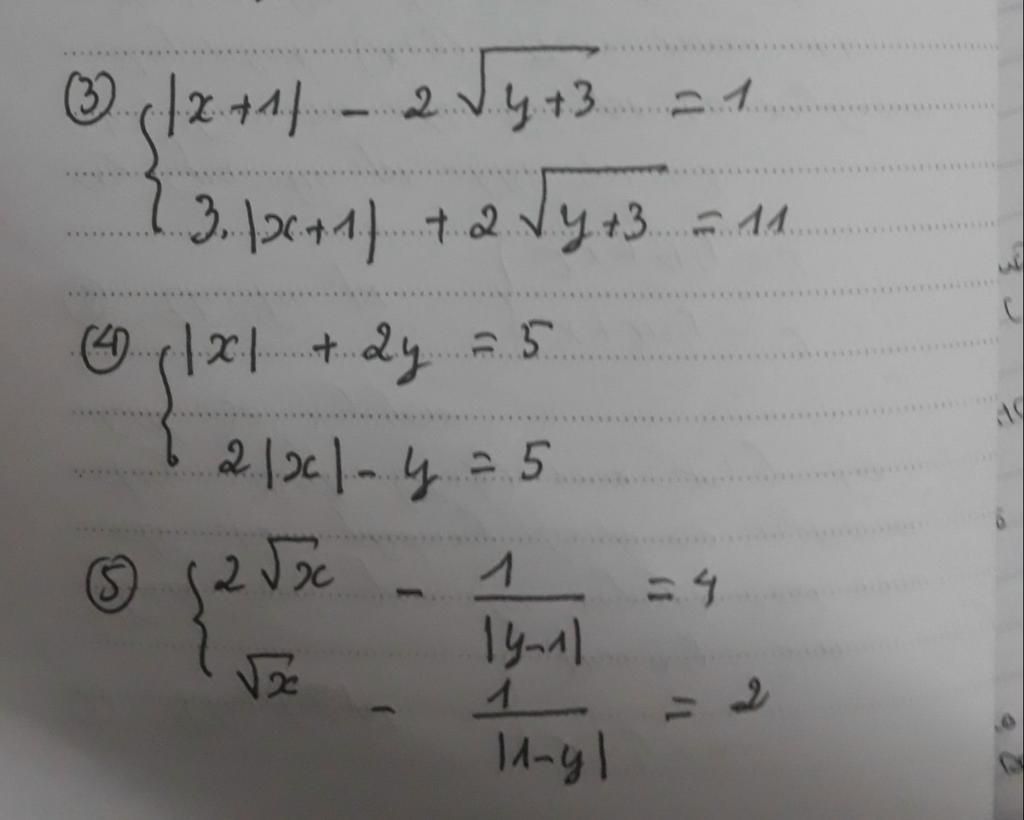 ③ { |x+1| - 2√(y+3) = 1
3.|x+1| + 2√(y+3) = 11
④ { |x| + 2y = 5
2|x| - y = 5
⑤ { 2√x - 1/|y-1| = 4
√x - 1/|1-y| = 2